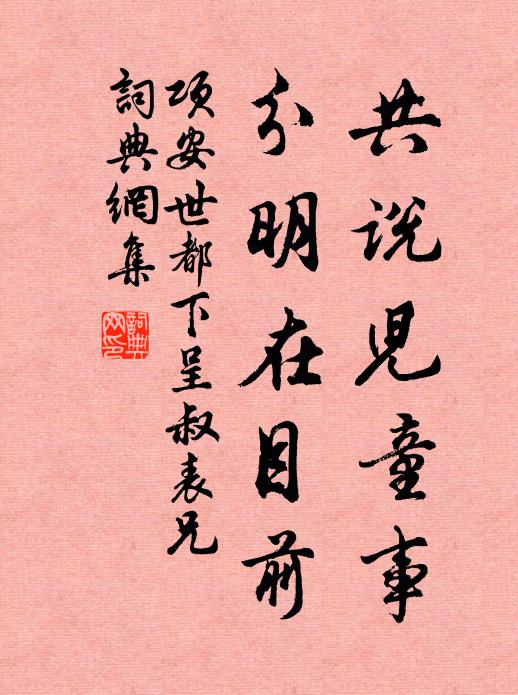 共説児童事
分明在目前
項安世都下呈叔表兄
詞典網集
詞典網印